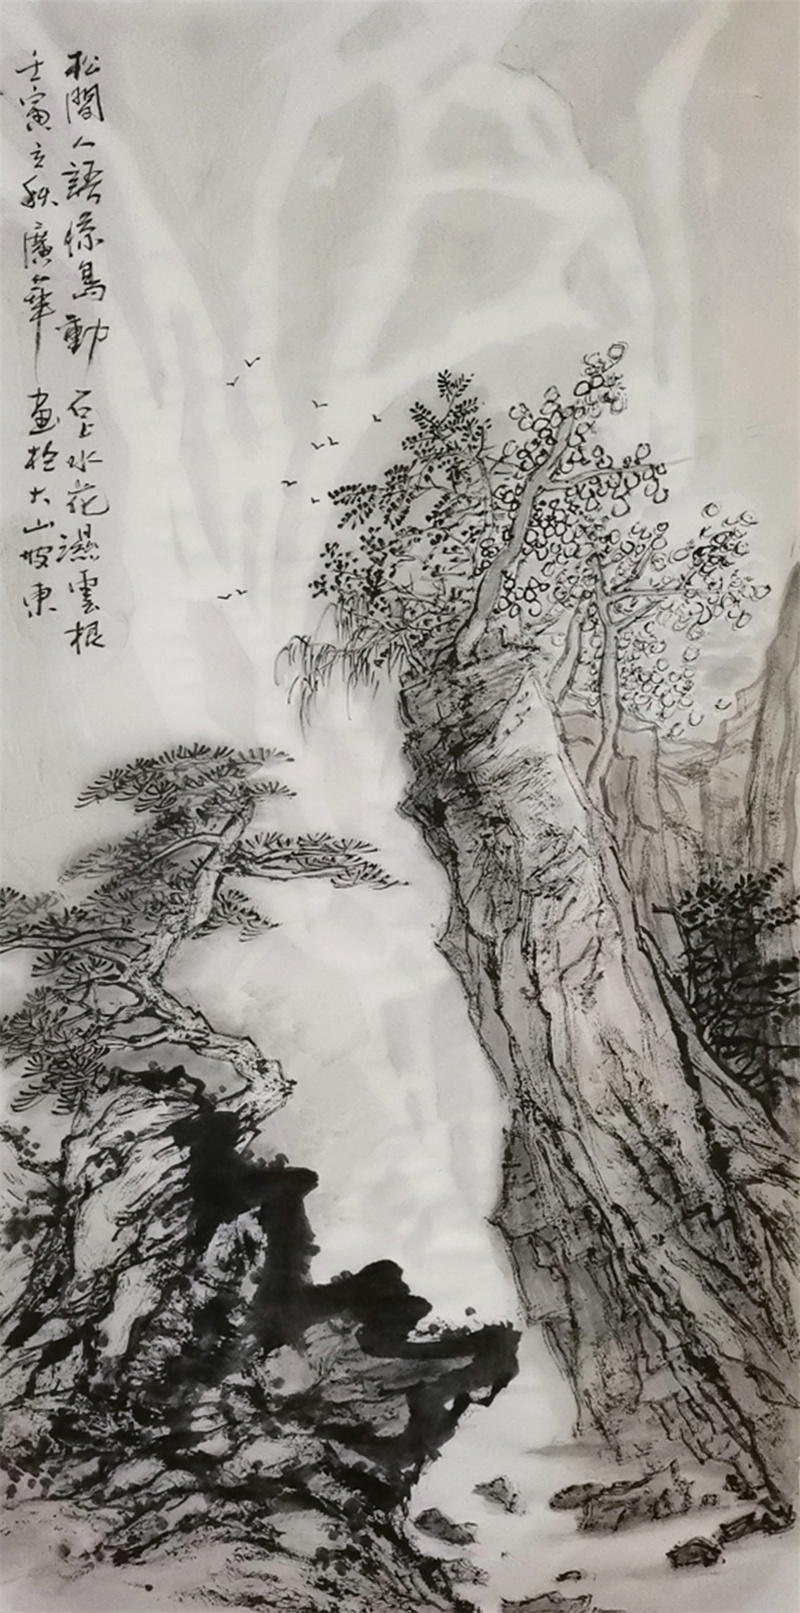 松間人語條鳥動石上水花濕雲根
壬寅立秋廣華畫於大山坡東